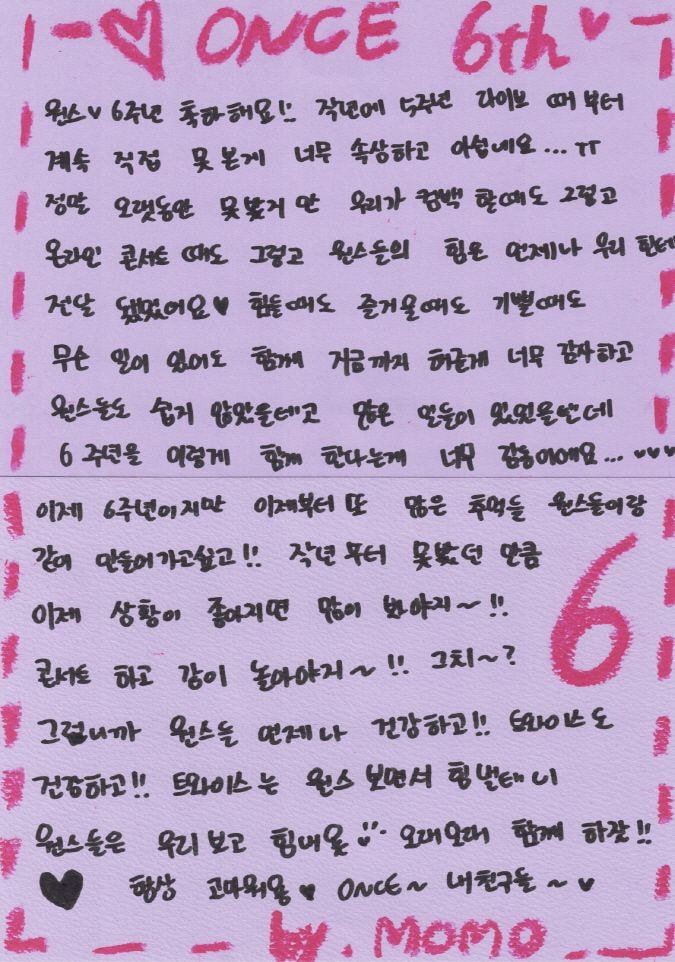 ♡ ONCE 6th ♡
원스♥ 6주년 축하해요!! 작년에 5주년 라이브 때부터
계속 직접 못 본게 너무 속상하고 아쉽네요... ㅠ
정말 오랫동안 못 봤지만 우리가 컴백 할때도 그렇고
온라인 콘서트 때도 그렇고 원스들의 힘은 언제나 우리 한테
전달 됐었어요♥ 힘들때도 즐거울때도 기쁠때도
무슨 일이 있어도 함께 지금까지 해준게 너무 감사하고
원스들도 쉽지 않았을테고 많은 일들이 있었을텐데
6주년을 이렇게 함께 한다는게 너무 감동이에요... ♥♥♥
이제 6주년이지만 이제부터 또 많은 추억들 원스들이랑
같이 만들어가고싶고!! 작년부터 못봤던 만큼
이제 상황이 좋아지면 많이 봐야지~!!
콘서트 하고 같이 놀아야지~!! 그치~?
6
그럽니까 원스들 언제나 건강하고!! 트와이스도
건강하고!! 트와이스는 원스 보면서 힘낼테니
원스들은 우리보고 힘내욧 오래오래 함께 하잣!!
♥ 항상 고마워용♥ ONCE~ 내친구들~♥
by. MOMO